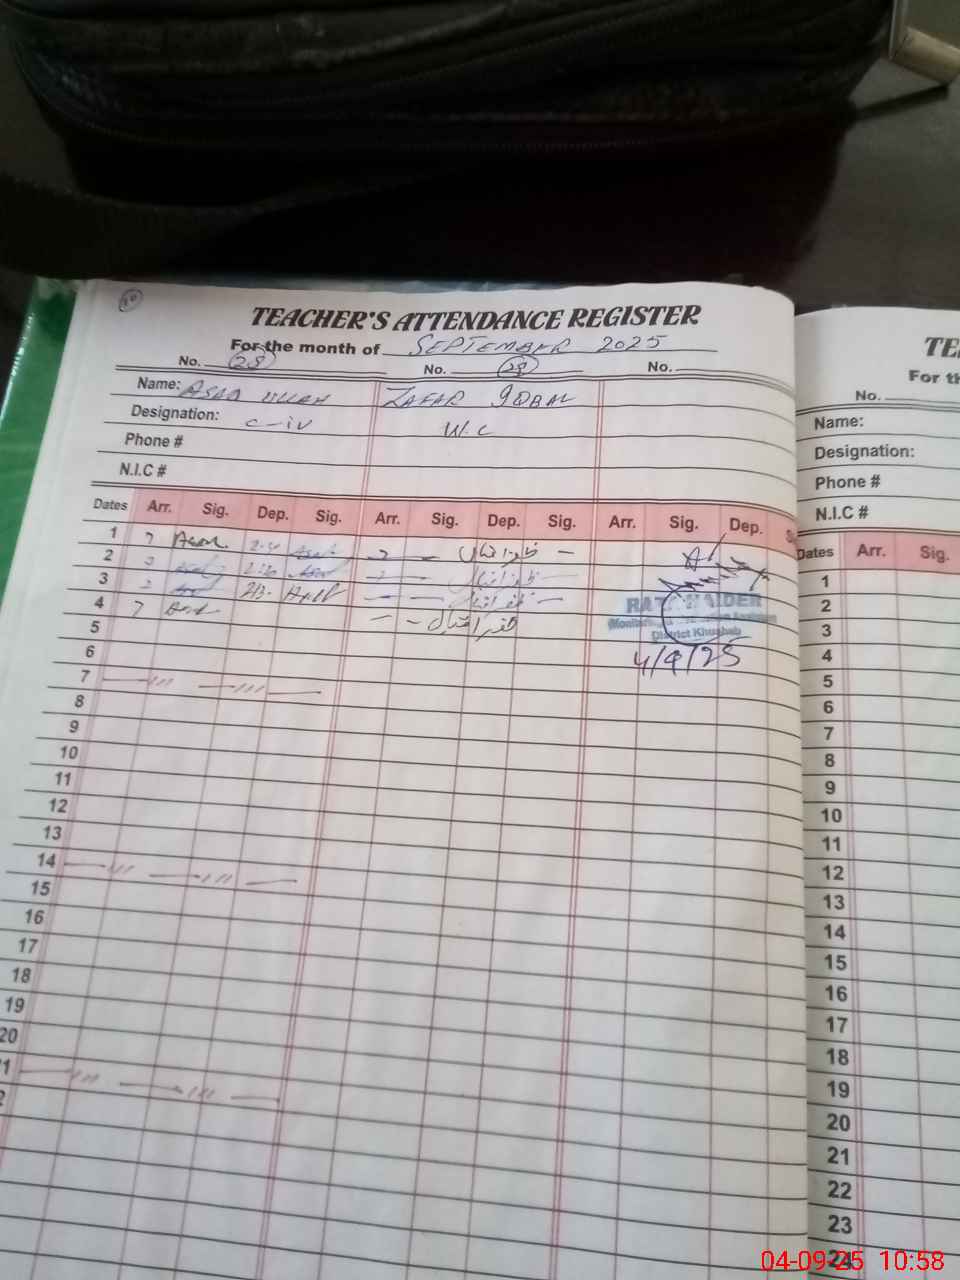 TEACHER'S ATTENDANCE REGISTER
For the month of SEPTEMBER 2025
No. 28 No. No.
Name: ASAD ULLAH ZAFAR IQBAL
Designation: C-IV W.C
Phone #
N.I.C #
Dates Arr. Sig. Dep. Sig. Arr. Sig. Dep. Sig. Arr. Sig. Dep.
1 7 Asad ظفر اقبال
2 ظفر اقبال
3 ظفر اقبال
4 7 ظفر اقبال
5
6
7
8
9
10
11
12
13
14
15
16
17
18
19
20
District Khushab
4/9/25
TE
For th
No.
Name:
Designation:
Phone #
N.I.C #
Dates Arr. Sig.
1
2
3
4
5
6
7
8
9
10
11
12
13
14
15
16
17
18
19
20
21
22
23
24
04-09-25 10:58